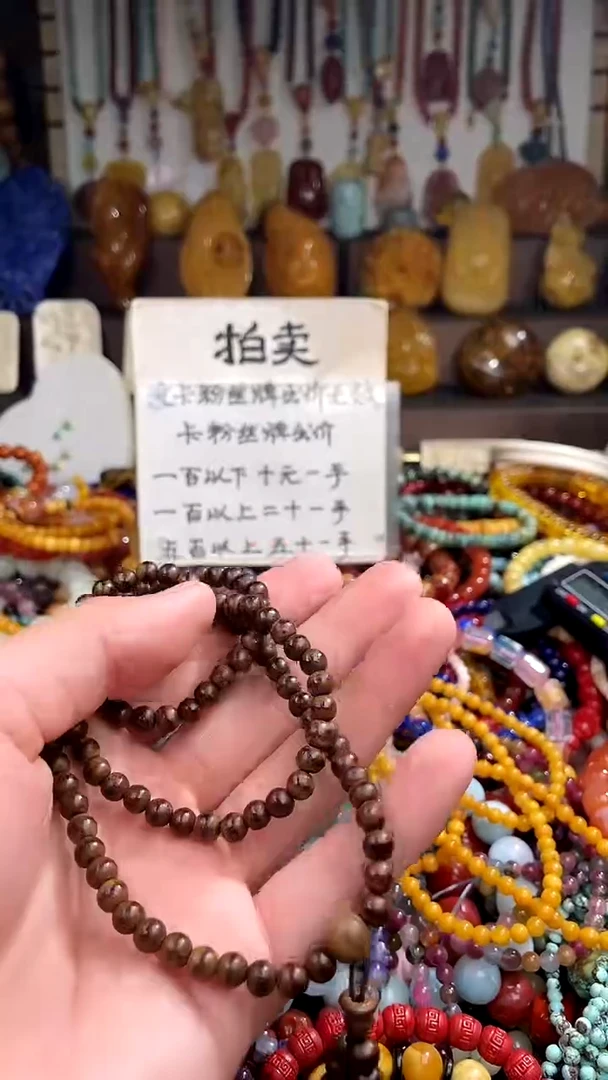 拍卖
卡粉丝牌出价无效
卡粉丝牌出价
一百以下十元一手
一百以上二十一手
五百以上五十一手